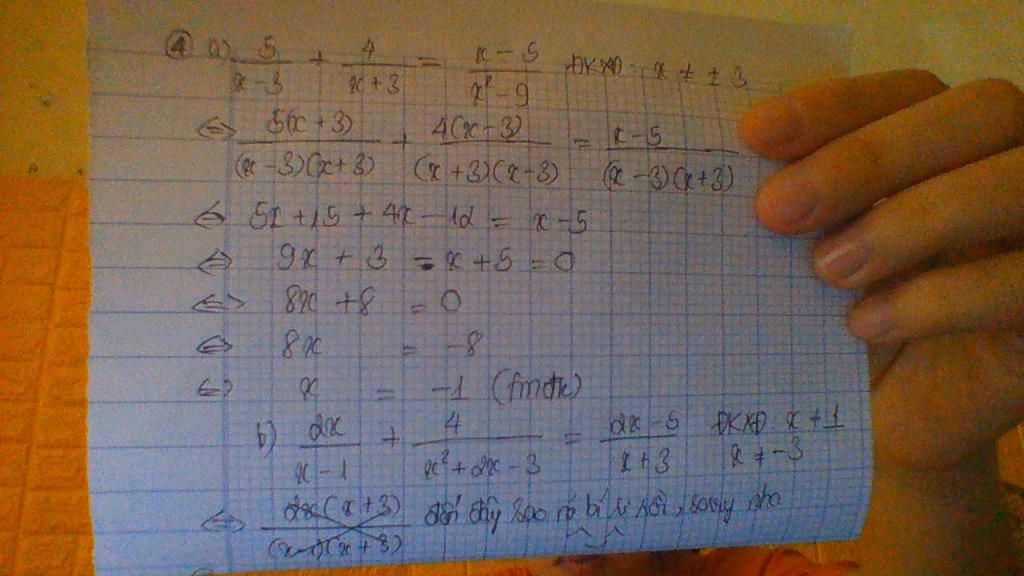 ① a) 5/(x-3) + 4/(x+3) = (x-5)/(x²-9) ĐKXĐ: x ≠ ± 3
⇔ 5(x+3)/((x-3)(x+3)) + 4(x-3)/((x+3)(x-3)) = (x-5)/((x-3)(x+3))
⇔ 5x+15 + 4x-12 = x-5
⇔ 9x + 3 - x + 5 = 0
⇔ 8x + 8 = 0
⇔ 8x = -8
⇔ x = -1 (tmđk)
b) 2x/(x-1) + 4/(x²+2x-3) = (2x-5)/(x+3) ĐKXĐ: x ≠ 1
x ≠ -3
⇔ 2x(x+3)/((x-1)(x+3)) đến đây sao nó bí rồi, sorry nha